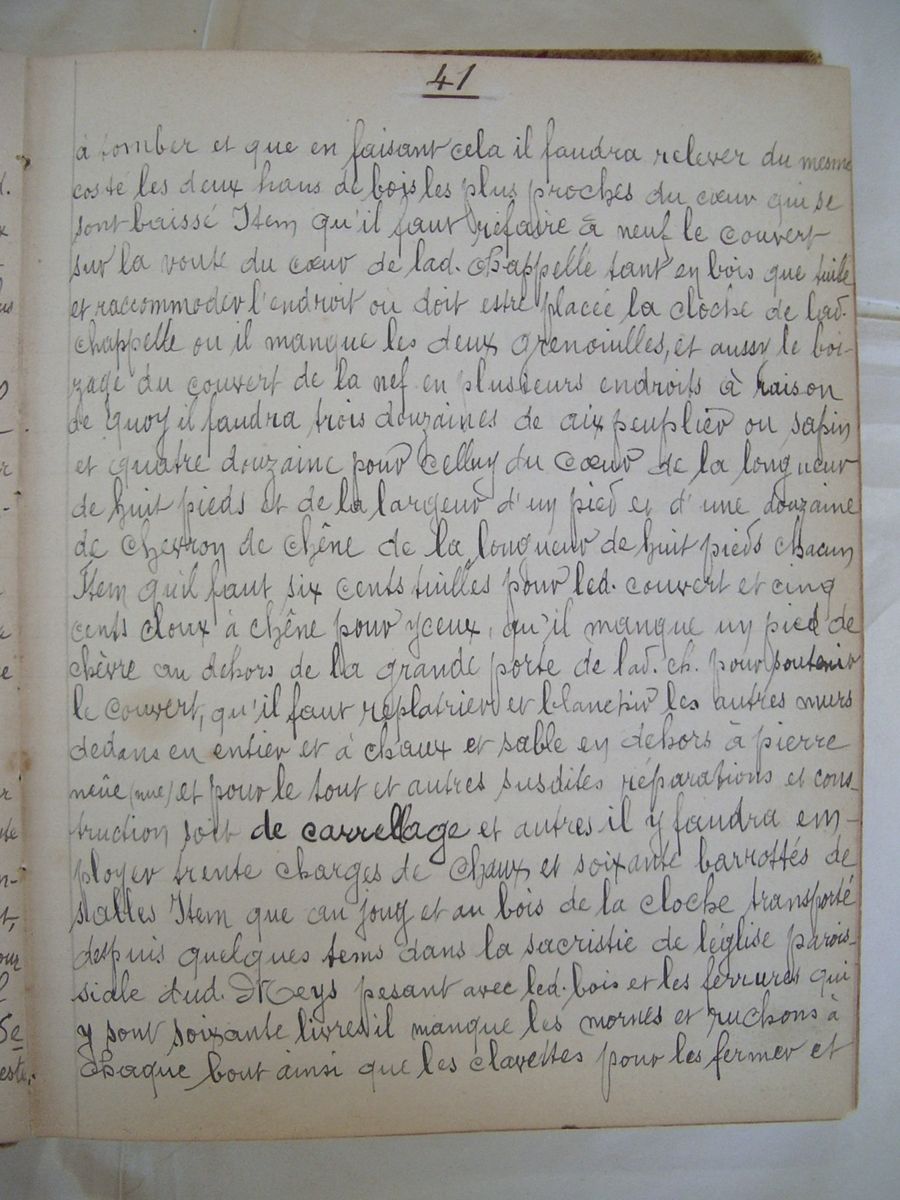 41
à tomber et que en faisant cela il faudra relever du mesme
costé les deux haus de bois les plus proches du cœur qui se
sont baissé Item qu'il faut refaire à neuf le couvert
sur la voute du cœur de lad. Chappelle tant en bois que tuile
et raccommoder l'endroit ou doit estre placée la cloche de lad.
chappelle ou il manque les deux grenouilles, et aussy le boi-
zage du couvert de la nef en plusieurs endroits à raison
de quoy il faudra trois douzaines de aix peuplier ou sapin
et quatre douzaine pour celluy du cœur de la longueur
de huit pieds et de la largeur d'un pied et d'une douzaine
de chevron de chêne de la longueur de huit pieds chacun
Item qu'il faut six cents tuilles pour led. couvert et cinq
cents cloux à chêne pour yceux, qu'il manque un pied de
chèvre au dehors de la grande porte de lad. ch. pour soutenir
le couvert, qu'il faut replatrier et blanchir les autres murs
dedans en entier et à chaux et sable en dehors à pierre
neüe (nue) et pour le tout et autres susdites réparations et cons-
truction soit de carrellage et autres il y faudra em-
ployer trente charges de chaux et soixante barrottés de
salles Item que au joug et au bois de la cloche transporté
despuis quelques tems dans la sacristie de l'église parois-
siale dud. Meys pesant avec led. bois et les ferrures qui
y sont soixante livres il manque les mornes et ruchons à
chaque bout ainsi que les clavettes pour les fermer et